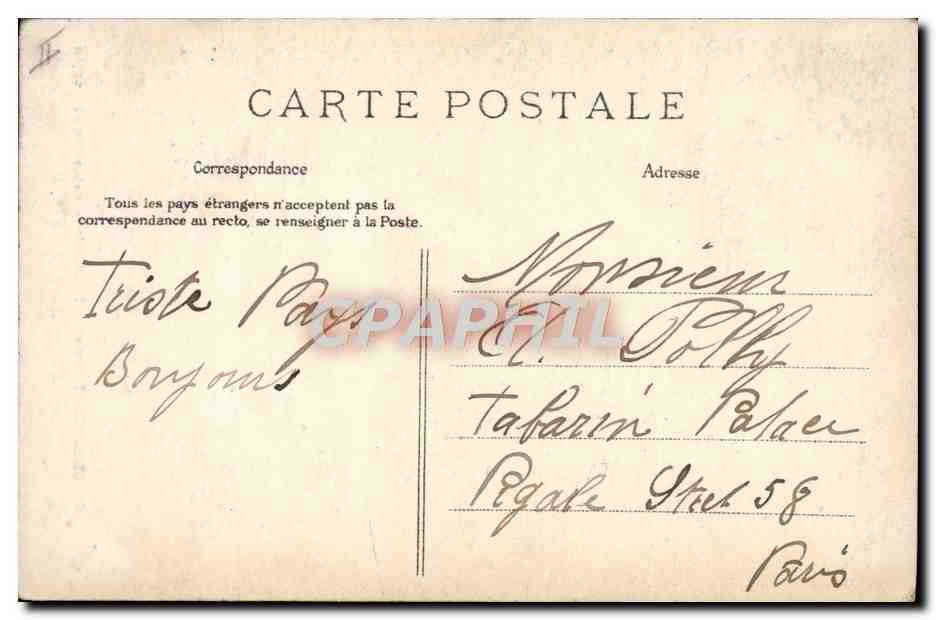 II
CARTE POSTALE
Correspondance
Tous les pays étrangers n'acceptent pas la
correspondance au recto, se renseigner à la Poste.
Triste Pays
Bonjours
Adresse
Monsieur
Polhy
Tabarin Palace
Pigale Street 58
Paris
CPAPHIL